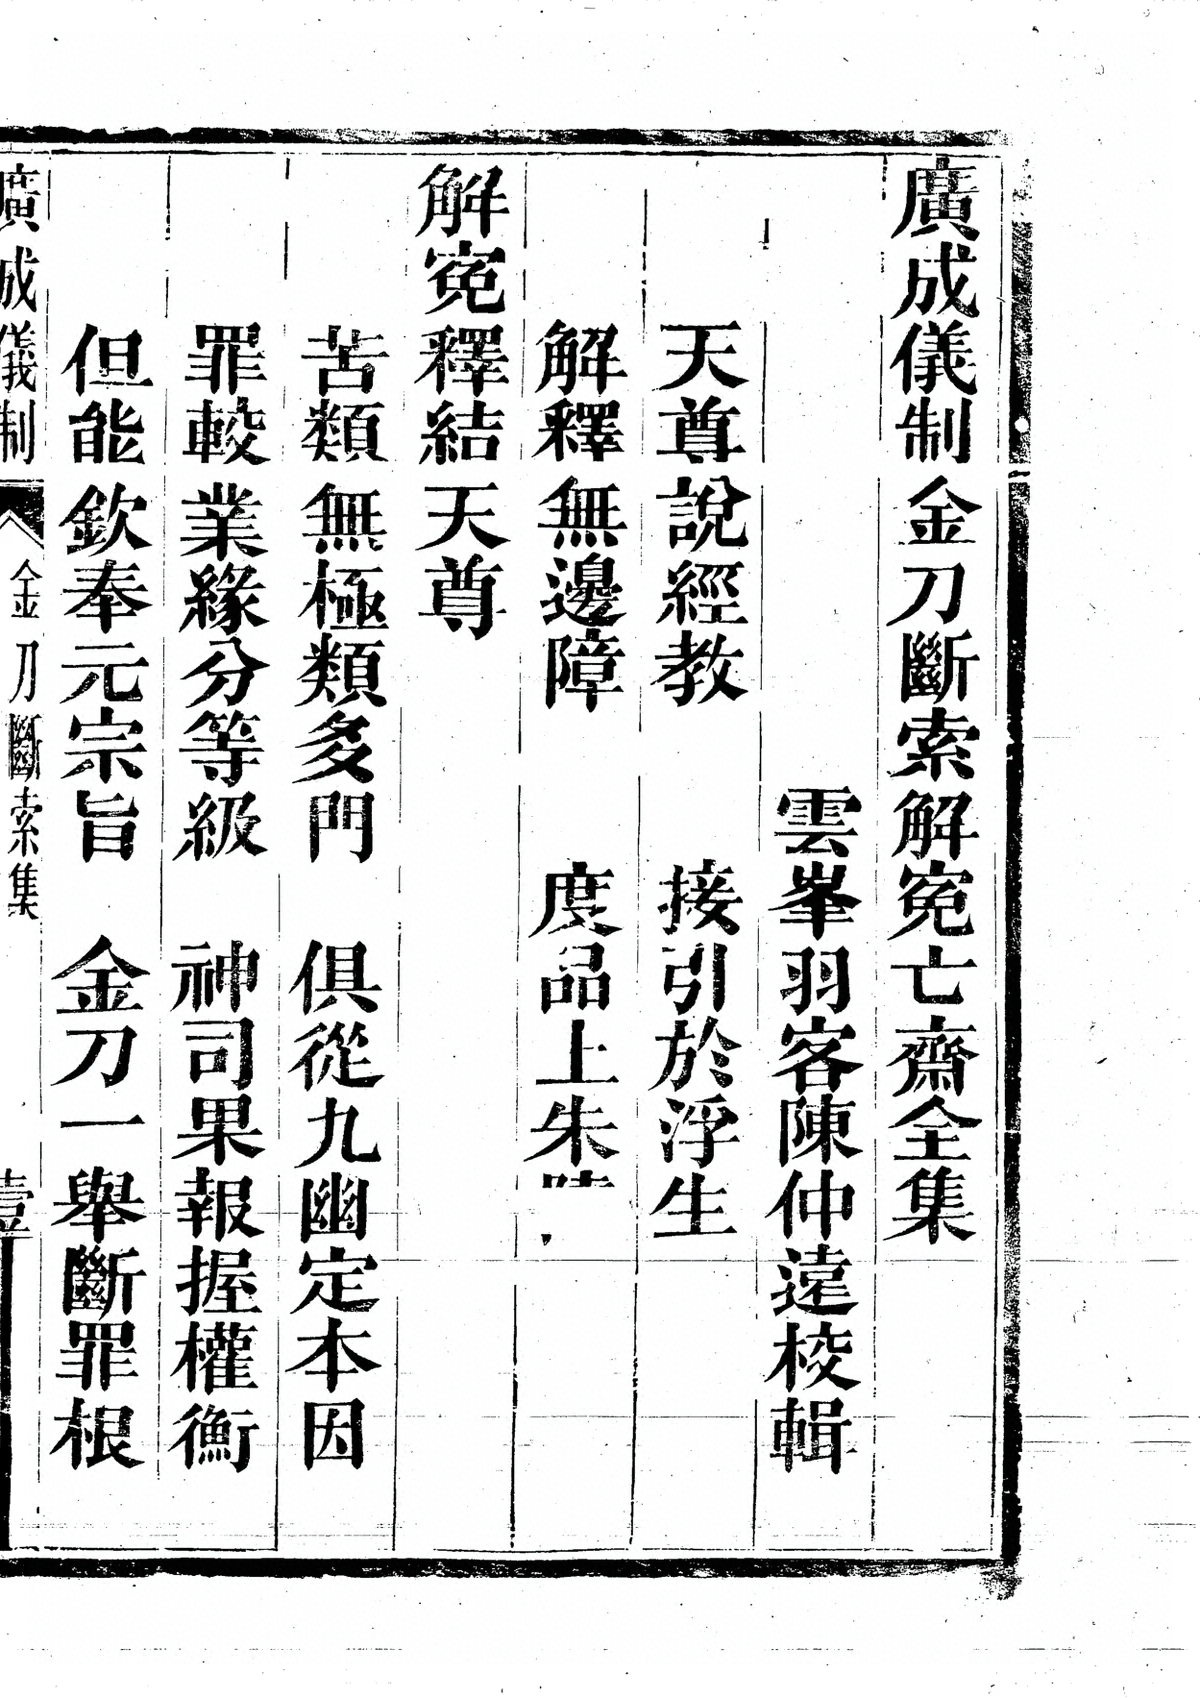 廣成儀制金刀斷索解寃亡齋全集
雲峯羽客陳仲遠校輯
天尊說經教　接引於浮生
解釋無邊障　度品上朱
解寃釋結天尊
苦類無極類多門　俱從九幽定本因
罪較業緣分等級　神司果報握權衡
但能欽奉元宗旨　金刀一舉斷罪根
廣成儀制　金刀斷索集　壹